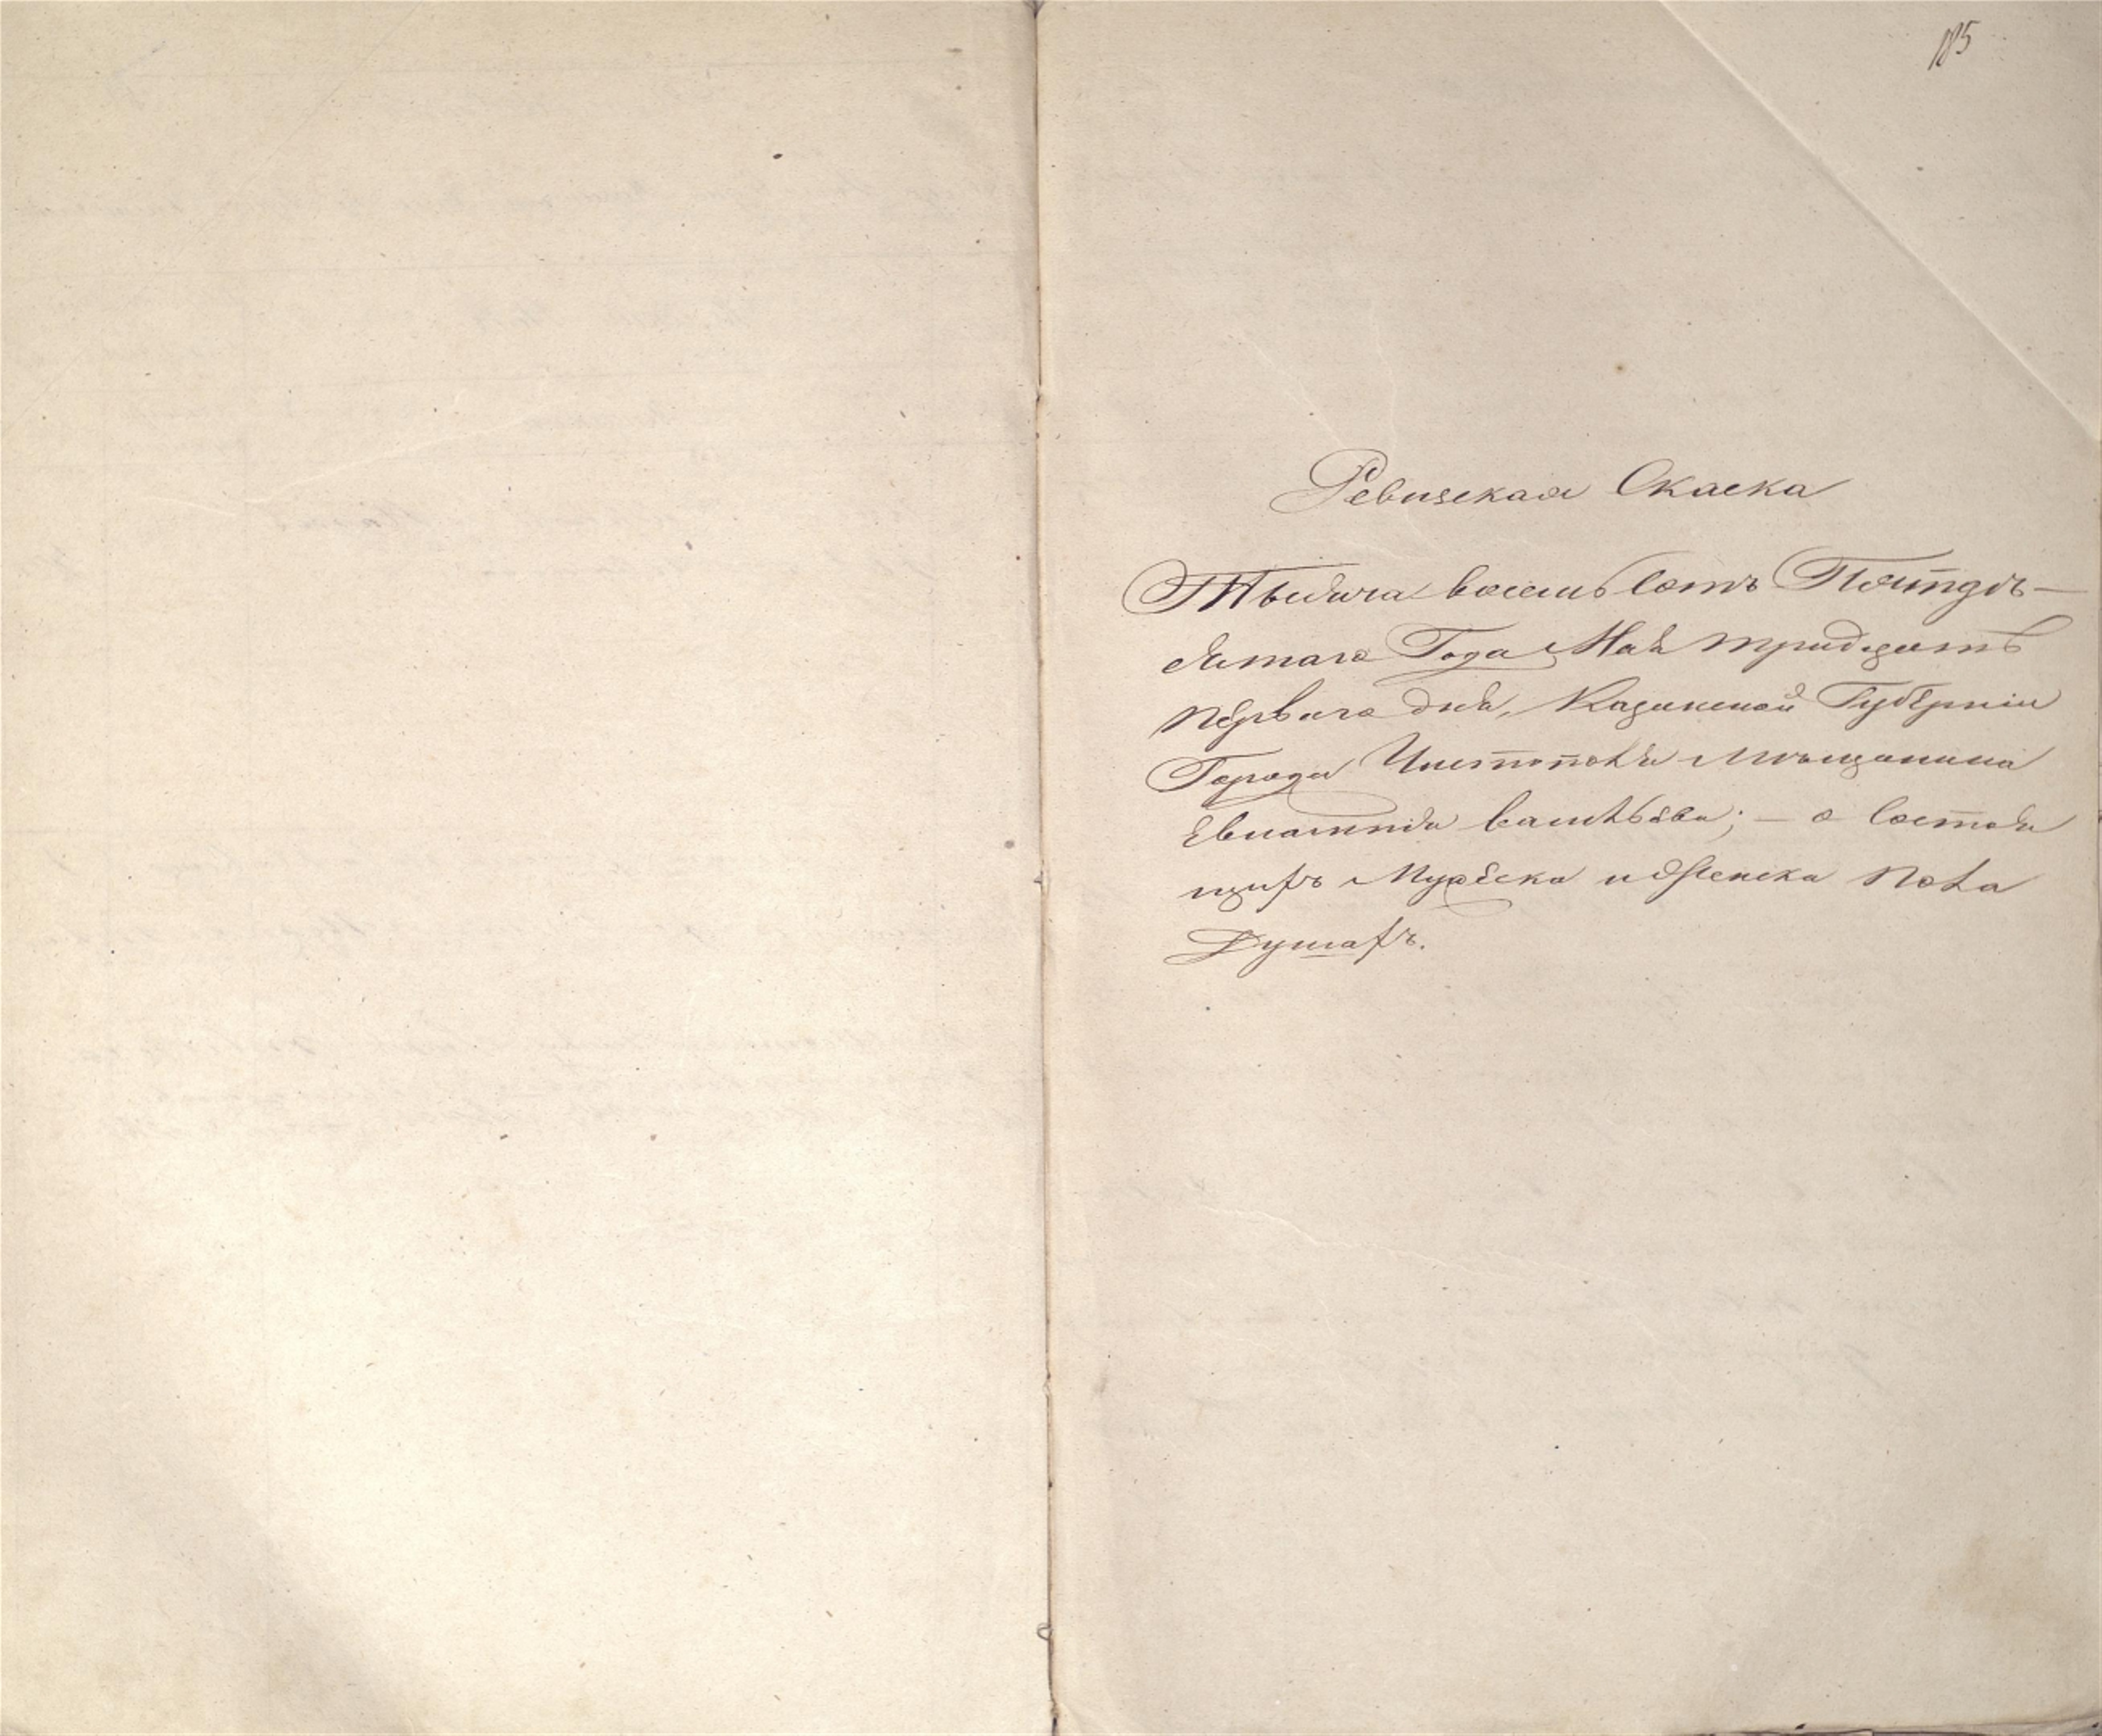 185
Ревизская Скаска
Тысяча восемь сотъ Пятдѣ-
сятаго Года Мая тридцать
перваго дня, Казанской Губерніи
Города Чистополя Мѣщанина
васильева; – о состоя
щихъ Мужеска и женска пола
Душахъ.